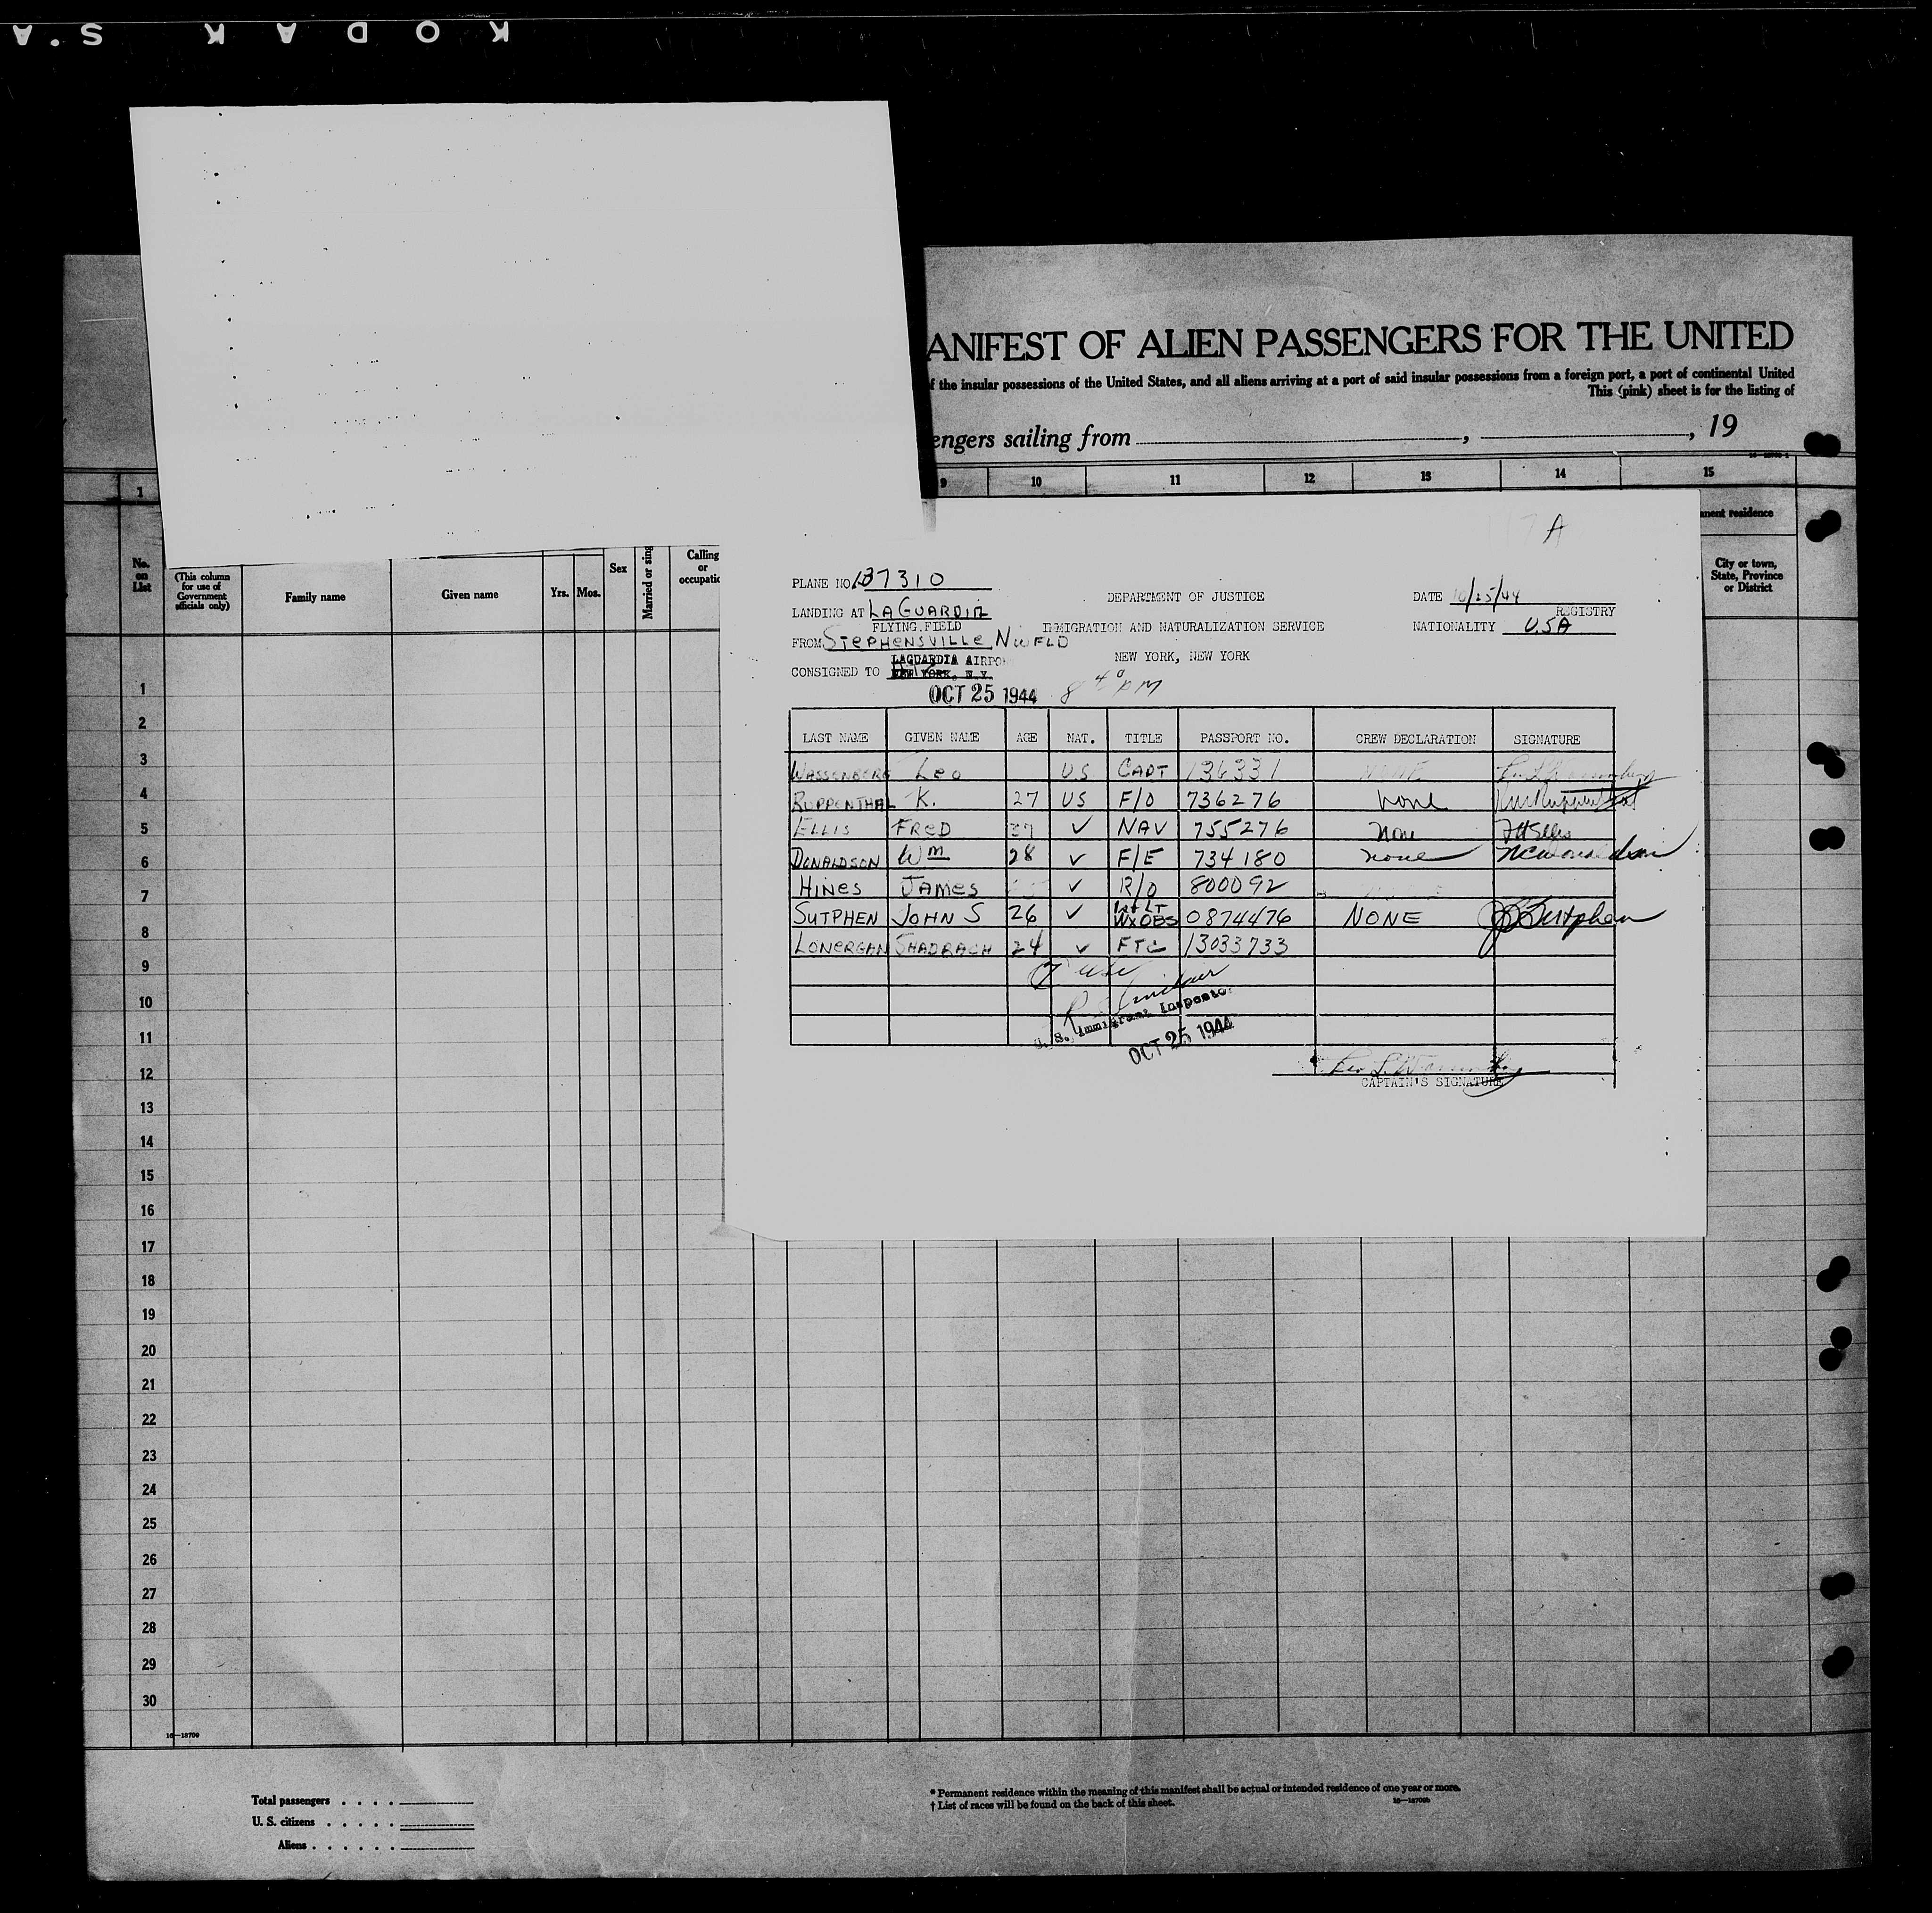 KODAK S.A
ANIFEST OF ALIEN PASSENGERS FOR THE UNITED
f the insular possessions of the United States, and all aliens arriving at a port of said insular possessions from a foreign port, a port of continental United
This (pink) sheet is for the listing of
engers sailing from , , 19
1 9 10 11 12 13 14 15
No. on List
(This column for use of Government officials only)
Family name
Given name
Yrs. Mos.
Sex
Married or sing
Calling or occupatio
anent residence
City or town, State, Province or District
A
PLANE NO. 37310
DEPARTMENT OF JUSTICE
DATE 10/25/44
LANDING AT LAGUARDIA
FLYING FIELD
REGISTRY
IMMIGRATION AND NATURALIZATION SERVICE
NATIONALITY USA
FROM STEPHENSVILLE NWFLD
NEW YORK, NEW YORK
CONSIGNED TO
LAGUARDIA AIRPO
NEW YORK, N.Y.
OCT 25 1944 8 40 PM
LAST NAME GIVEN NAME AGE NAT. TITLE PASSPORT NO. CREW DECLARATION SIGNATURE
WASSENBERG Leo U.S CAPT 136331
RUPPENTHAL K. 27 US F/O 736276 None
ELLIS FRED 37 ✓ NAV 755276 Non FH Ellis
DONALDSON Wm 28 ✓ F/E 734180 none
HINES JAMES ✓ R/O 800092
SUTPHEN JOHN S 26 ✓ 1st LT WXOBS 0874476 NONE JS Sutphen
LONERGAN SHADRACH 24 ✓ FTC 13033733
U. S. Immigrant Inspector
OCT 25 1944
CAPTAIN'S SIGNATURE
1
2
3
4
5
6
7
8
9
10
11
12
13
14
15
16
17
18
19
20
21
22
23
24
25
26
27
28
29
30
16—18709
Total passengers . . . .
U. S. citizens . . . . .
Aliens . . . . . .
* Permanent residence within the meaning of this manifest shall be actual or intended residence of one year or more.
† List of races will be found on the back of this sheet.